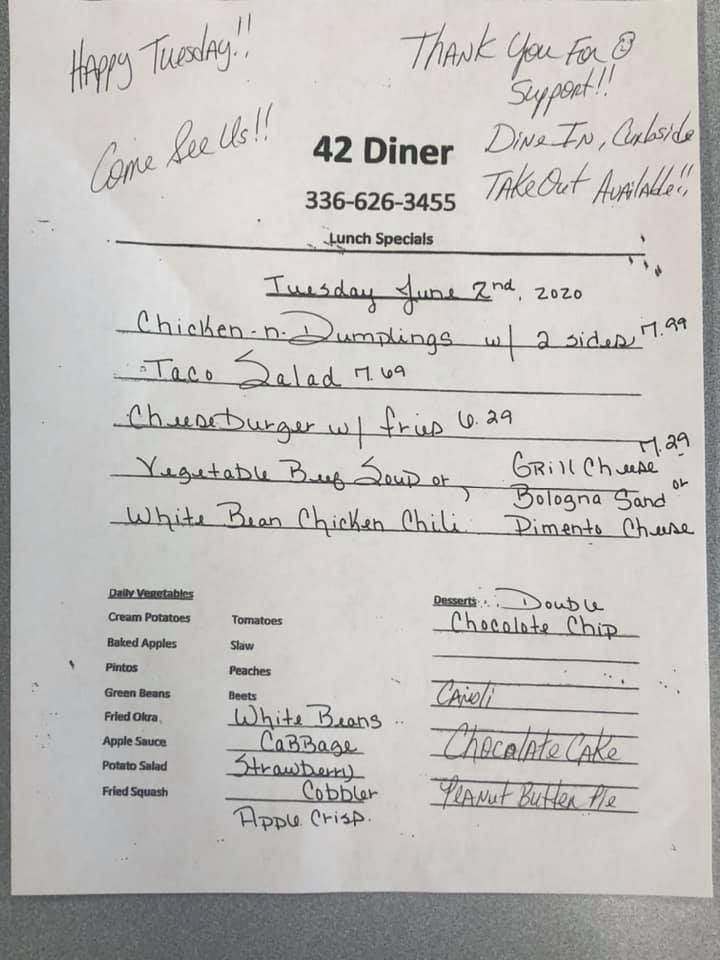 Happy Tuesday!!
Come See Us!!
Thank You For
Support!!
Dine In, Curbside
Take Out Available!!
42 Diner
336-626-3455
Lunch Specials
Tuesday June 2nd, 2020
Chicken-n-Dumplings w/ 2 sides 7.99
Taco Salad 7.69
Cheeseburger w/ fries 6.29
7.29
Vegetable Beef Soup or, Grill Cheese
Bologna Sand or
White Bean Chicken Chili Pimento Cheese
Daily Vegetables
Cream Potatoes
Baked Apples
Pintos
Green Beans
Fried Okra
Apple Sauce
Potato Salad
Fried Squash
Tomatoes
Slaw
Peaches
Beets
White Beans
Cabbage
Strawberry
Cobbler
Apple Crisp.
Desserts Double
Chocolate Chip
Canoli
Chocolate Cake
Peanut Butter Pie